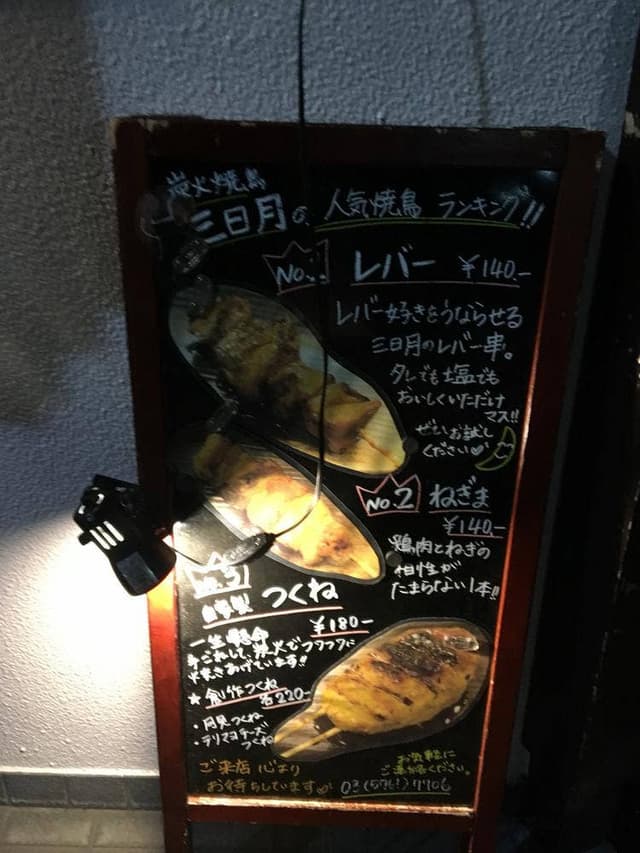 炭火焼鳥
三日月の 人気焼鳥 ランキング!!
No.1 レバー ¥140.-
レバー好きをうならせる
三日月のレバー串。
タレでも塩でも
おいしくいただけ
マス!!
ぜひお試し
ください♡
No.2 ねぎま
¥140.-
鶏肉とねぎの
相性が
たまらない1本!!
No.3
自家製 つくね
¥180-
一生懸命
手ごねして、炭火でフワフワに
焼きあげています!!
★創作つくね
各220-
・月見つくね
・テリマヨチーズ
つくね
ご来店 心より
お待ちしています♡
お気軽に
ご連絡ください。